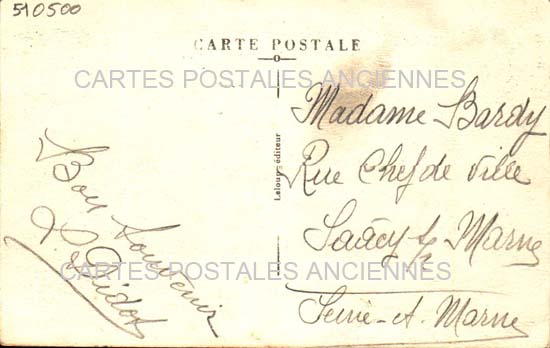 510500
CARTE POSTALE
CARTES POSTALES ANCIENNES
Madame Bardy
Rue Chef de Ville
Saâcy s/ Marne
Seine-et-Marne
Bon Souvenir
Didot
Leloup, éditeur
CARTES POSTALES ANCIENNES